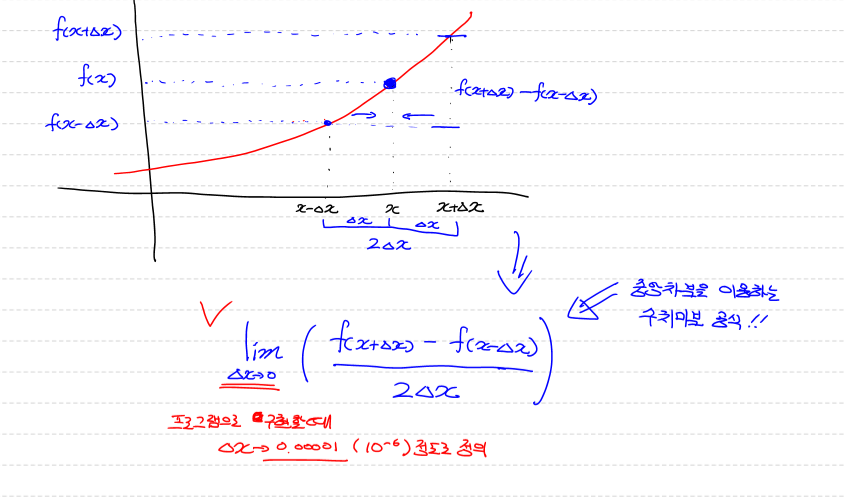 f(x+Δx)
f(x)
f(x-Δx)
f(x+Δx) - f(x-Δx)
x-Δx x x+Δx
Δx Δx
2Δx
중앙차분을 이용하는
수치미분 공식!!
lim Δx→0 ( f(x+Δx) - f(x-Δx) / 2Δx )
프로그램으로 구현할 때
Δx→ 0.00001 (10⁻⁶) 정도로 정의